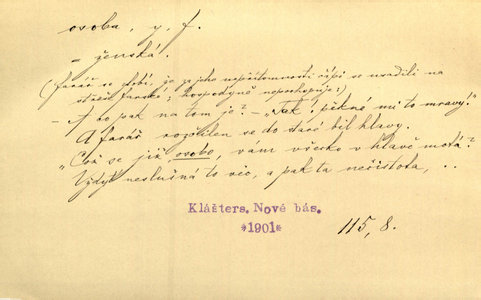 osoba, y, f.
– ženská.
(farář se zlobí, že za jeho nepřítomnosti čápi se usadili na
střeše farské; hospodyně nepochopuje:)
– A to pak na tom je? – „Tak! pěkné mi to mravy!"
A farář rozpálen se do staré bil hlavy.
„Což se již osobo, vám všecko v hlavě motá?
Vždyť neslušná to věc, a pak ta nečistota, ..
Klášters. Nové bás.
*1901*
115, 8.